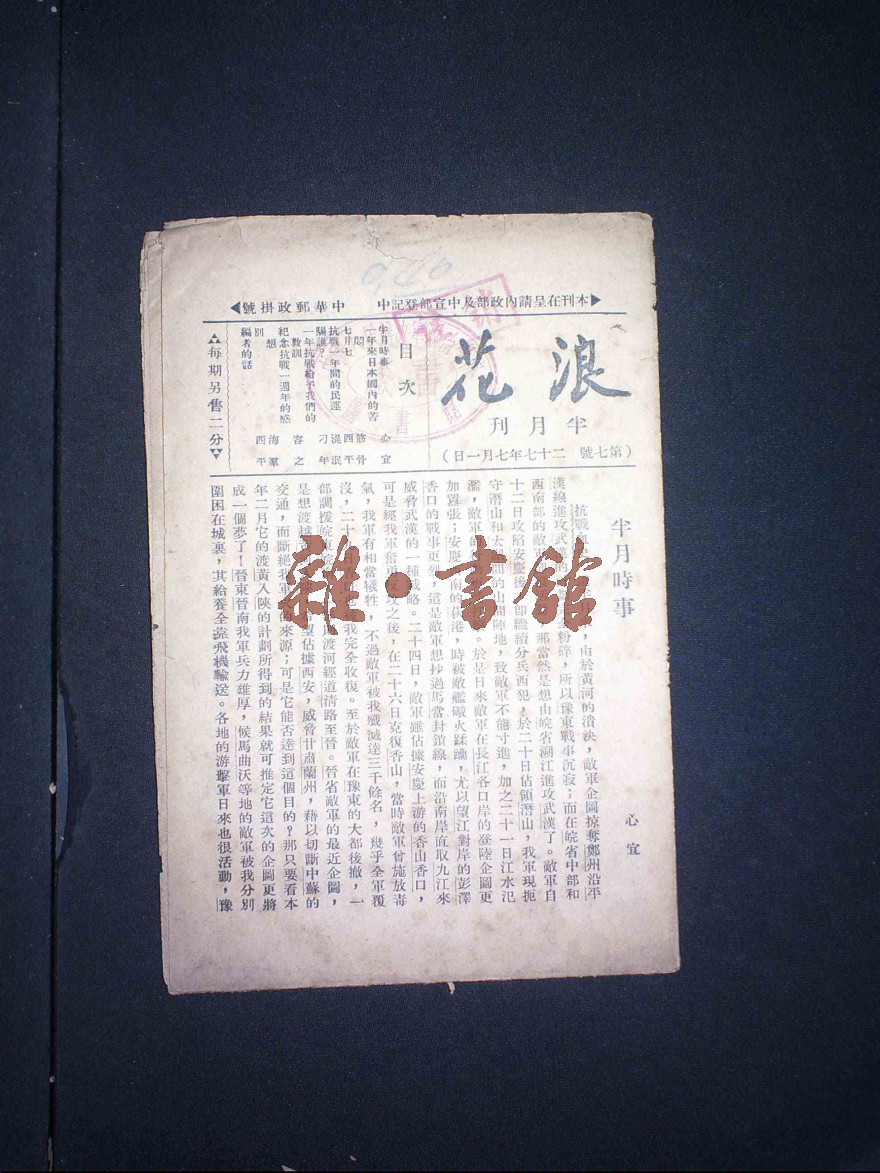 ▶本刊在呈請內政部及中宣部登記中　中華郵政掛號◀
浪花
半月刊
（第七號　二十七年七月一日）
目次
半月時事　心宜
一年來日本國內的苦
悶
七月七　四平
抗戰一年間的民運
一年抗戰給予我們的
教訓　容之
紀念抗戰一週年的感
想　海羣
別
編者的話　四平
每期另售二分
半月時事
心宜
抗戰
，由於黃河的潰決，敵軍企圖掠奪鄭州沿平
漢線進攻武漢的
粉碎，所以豫東戰事沉寂；而在皖省中部和
西南部的敵軍
那當然是想由皖省潮江進攻武漢了。敵軍自
十二日攻陷安慶後
即繼續分兵西犯，於二十日佔領潛山，我軍現扼
守潛山和太
間的山
陣地，致敵軍不能寸進，加之二十一日江水氾
濫，敵軍的
。於是日來敵軍在長江各口岸的登陸企圖更
加囂張；安慶
南的
港，時被敵艦礮火蹂躪，尤以望江對岸的彭澤
香口的戰事更烈，這是敵軍想抄過馬當封鎖線，而沿南岸直取九江來
威脅武漢的一種戰略。二十四日，敵軍雖佔據安慶上游的香山香口，
可是經我軍奮
攻之後，在二十六日克復香山，當時敵軍曾施放毒
氣，我軍有相當犧牲，不過敵軍被我殲滅達三千餘名，幾乎全軍覆
沒，二十
我完全收復。至於敵軍在豫東的大都後撤，一
部調援皖東
渡河經道清路至晉。晉省敵軍的最近企圖，
是想渡越
望佔據西安，威脅甘肅蘭州，藉以切斷中蘇的
交通，而斷絕我軍
的來源；可是它能否達到這個目的？那只要看本
年二月它的渡黃入陝的計劃所得到的結果就可推定它這次的企圖更將
成一個夢了！晉東晉南我軍兵力雄厚，候馬曲沃等地的敵軍被我分別
圍困在城裏，其給養全靠飛機輸送。各地的游擊軍日來也很活動，豫
雜·書館